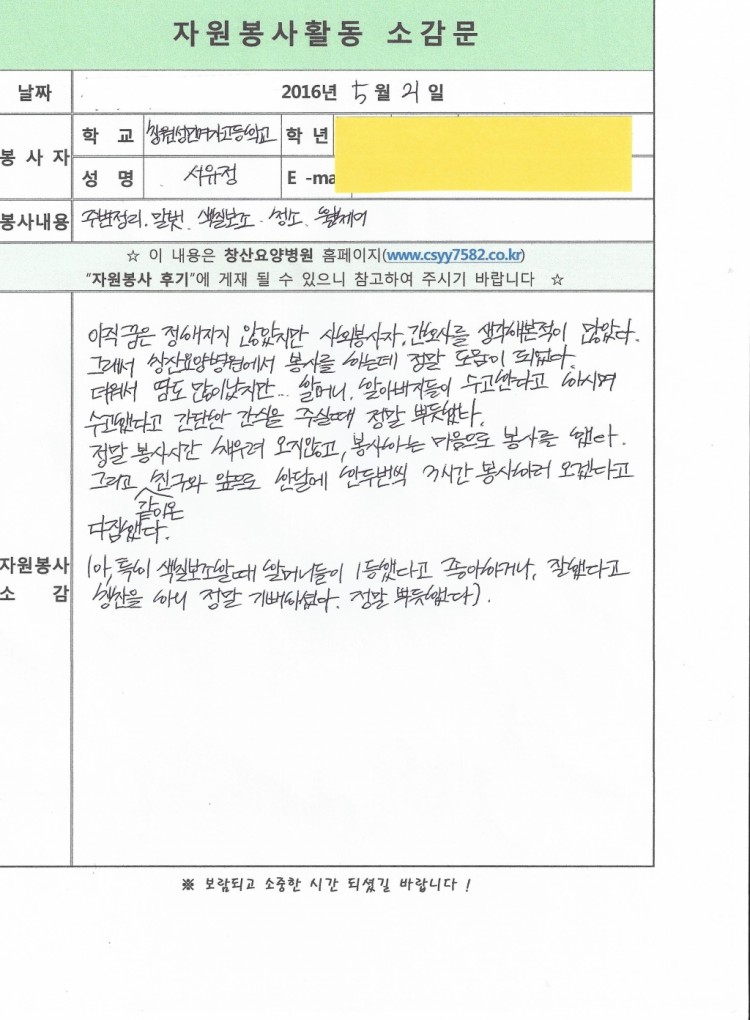 자원봉사활동 소감문
날짜 2016년 5월 21일
봉사자 학교 창원성민여자고등학교 학년
성명 서유정 E-ma
봉사내용 주변정리, 말벗, 색칠보조, 청소, 휠체어
☆ 이 내용은 창산요양병원 홈페이지(www.csyy7582.co.kr)
"자원봉사 후기"에 게재 될 수 있으니 참고하여 주시기 바랍니다 ☆
아직 꿈은 정해지지 않았지만 사회봉사자, 간호사를 생각해본적이 많았다.
그래서 창산요양병원에서 봉사를 하는데 정말 도움이 되었다.
더워서 땀도 많이났지만... 할머니, 할아버지들이 수고한다고 하시며
수고했다고 간단한 간식을 주실때 정말 뿌듯했다.
정말 봉사시간 채우려 오지않고, 봉사하는 마음으로 봉사를 했다.
그리고 같이온 친구와 앞으로 한달에 한두번씩 3시간 봉사하러 오겠다고
다짐했다.
자원봉사 소감
(아, 특히 색칠보조할때 할머니들이 1등했다고 좋아하거나, 잘했다고
칭찬을 하니 정말 기뻐하셨다. 정말 뿌듯했다).
※ 보람되고 소중한 시간 되셨길 바랍니다 !